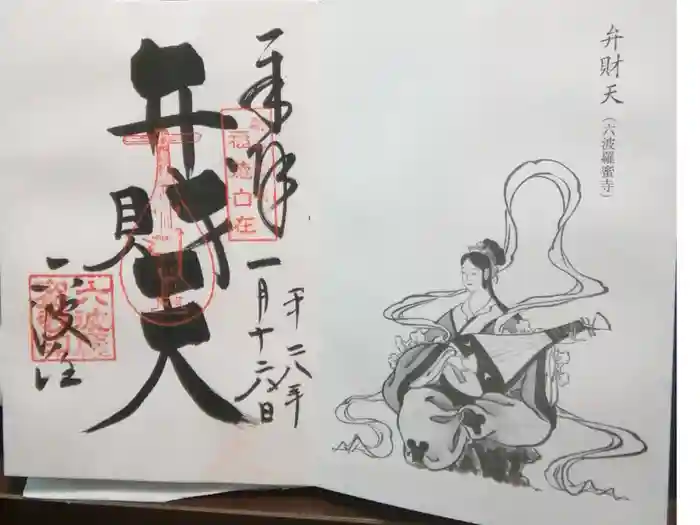 奉拝
平二八年
一月十六日
福徳自在
弁財天
六波羅
弁財天
(六波羅蜜寺)